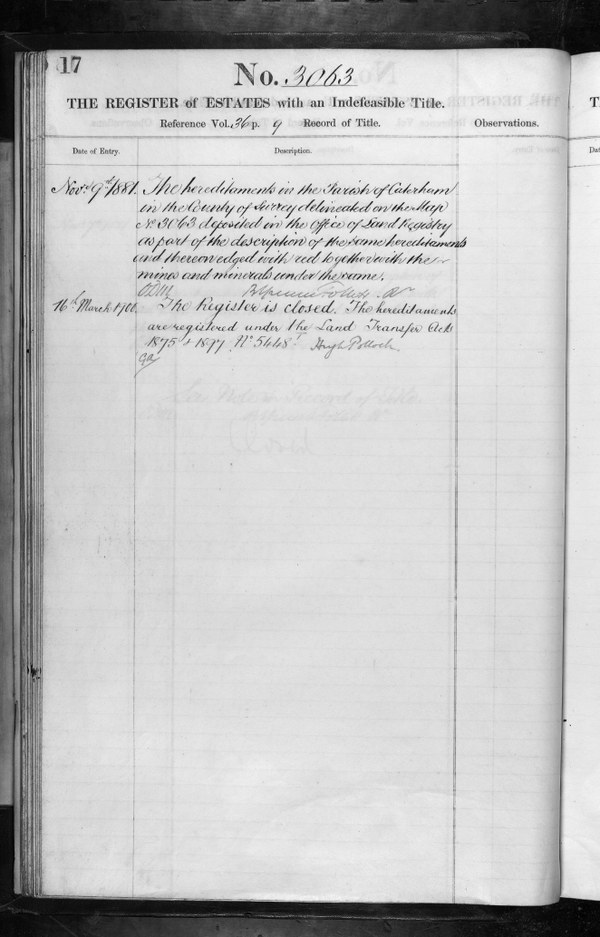 17
No. 3063
THE REGISTER of ESTATES with an Indefeasible Title.
Reference Vol. 36 p. 9 Record of Title.
Observations.
Date of Entry.
Description.
Novr. 9th 1881. The hereditaments in the Parish of Caterham
in the County of Surrey delineated on the Map
No. 3063 deposited in the Office of Land Registry
as part of the description of the same hereditaments
and thereon edged with red together with the
mines and minerals under the same.
16th March 1900. The Register is closed. The hereditaments
are registered under the Land Transfer Acts
1875 & 1897 No. 5448 Hugh Pollock